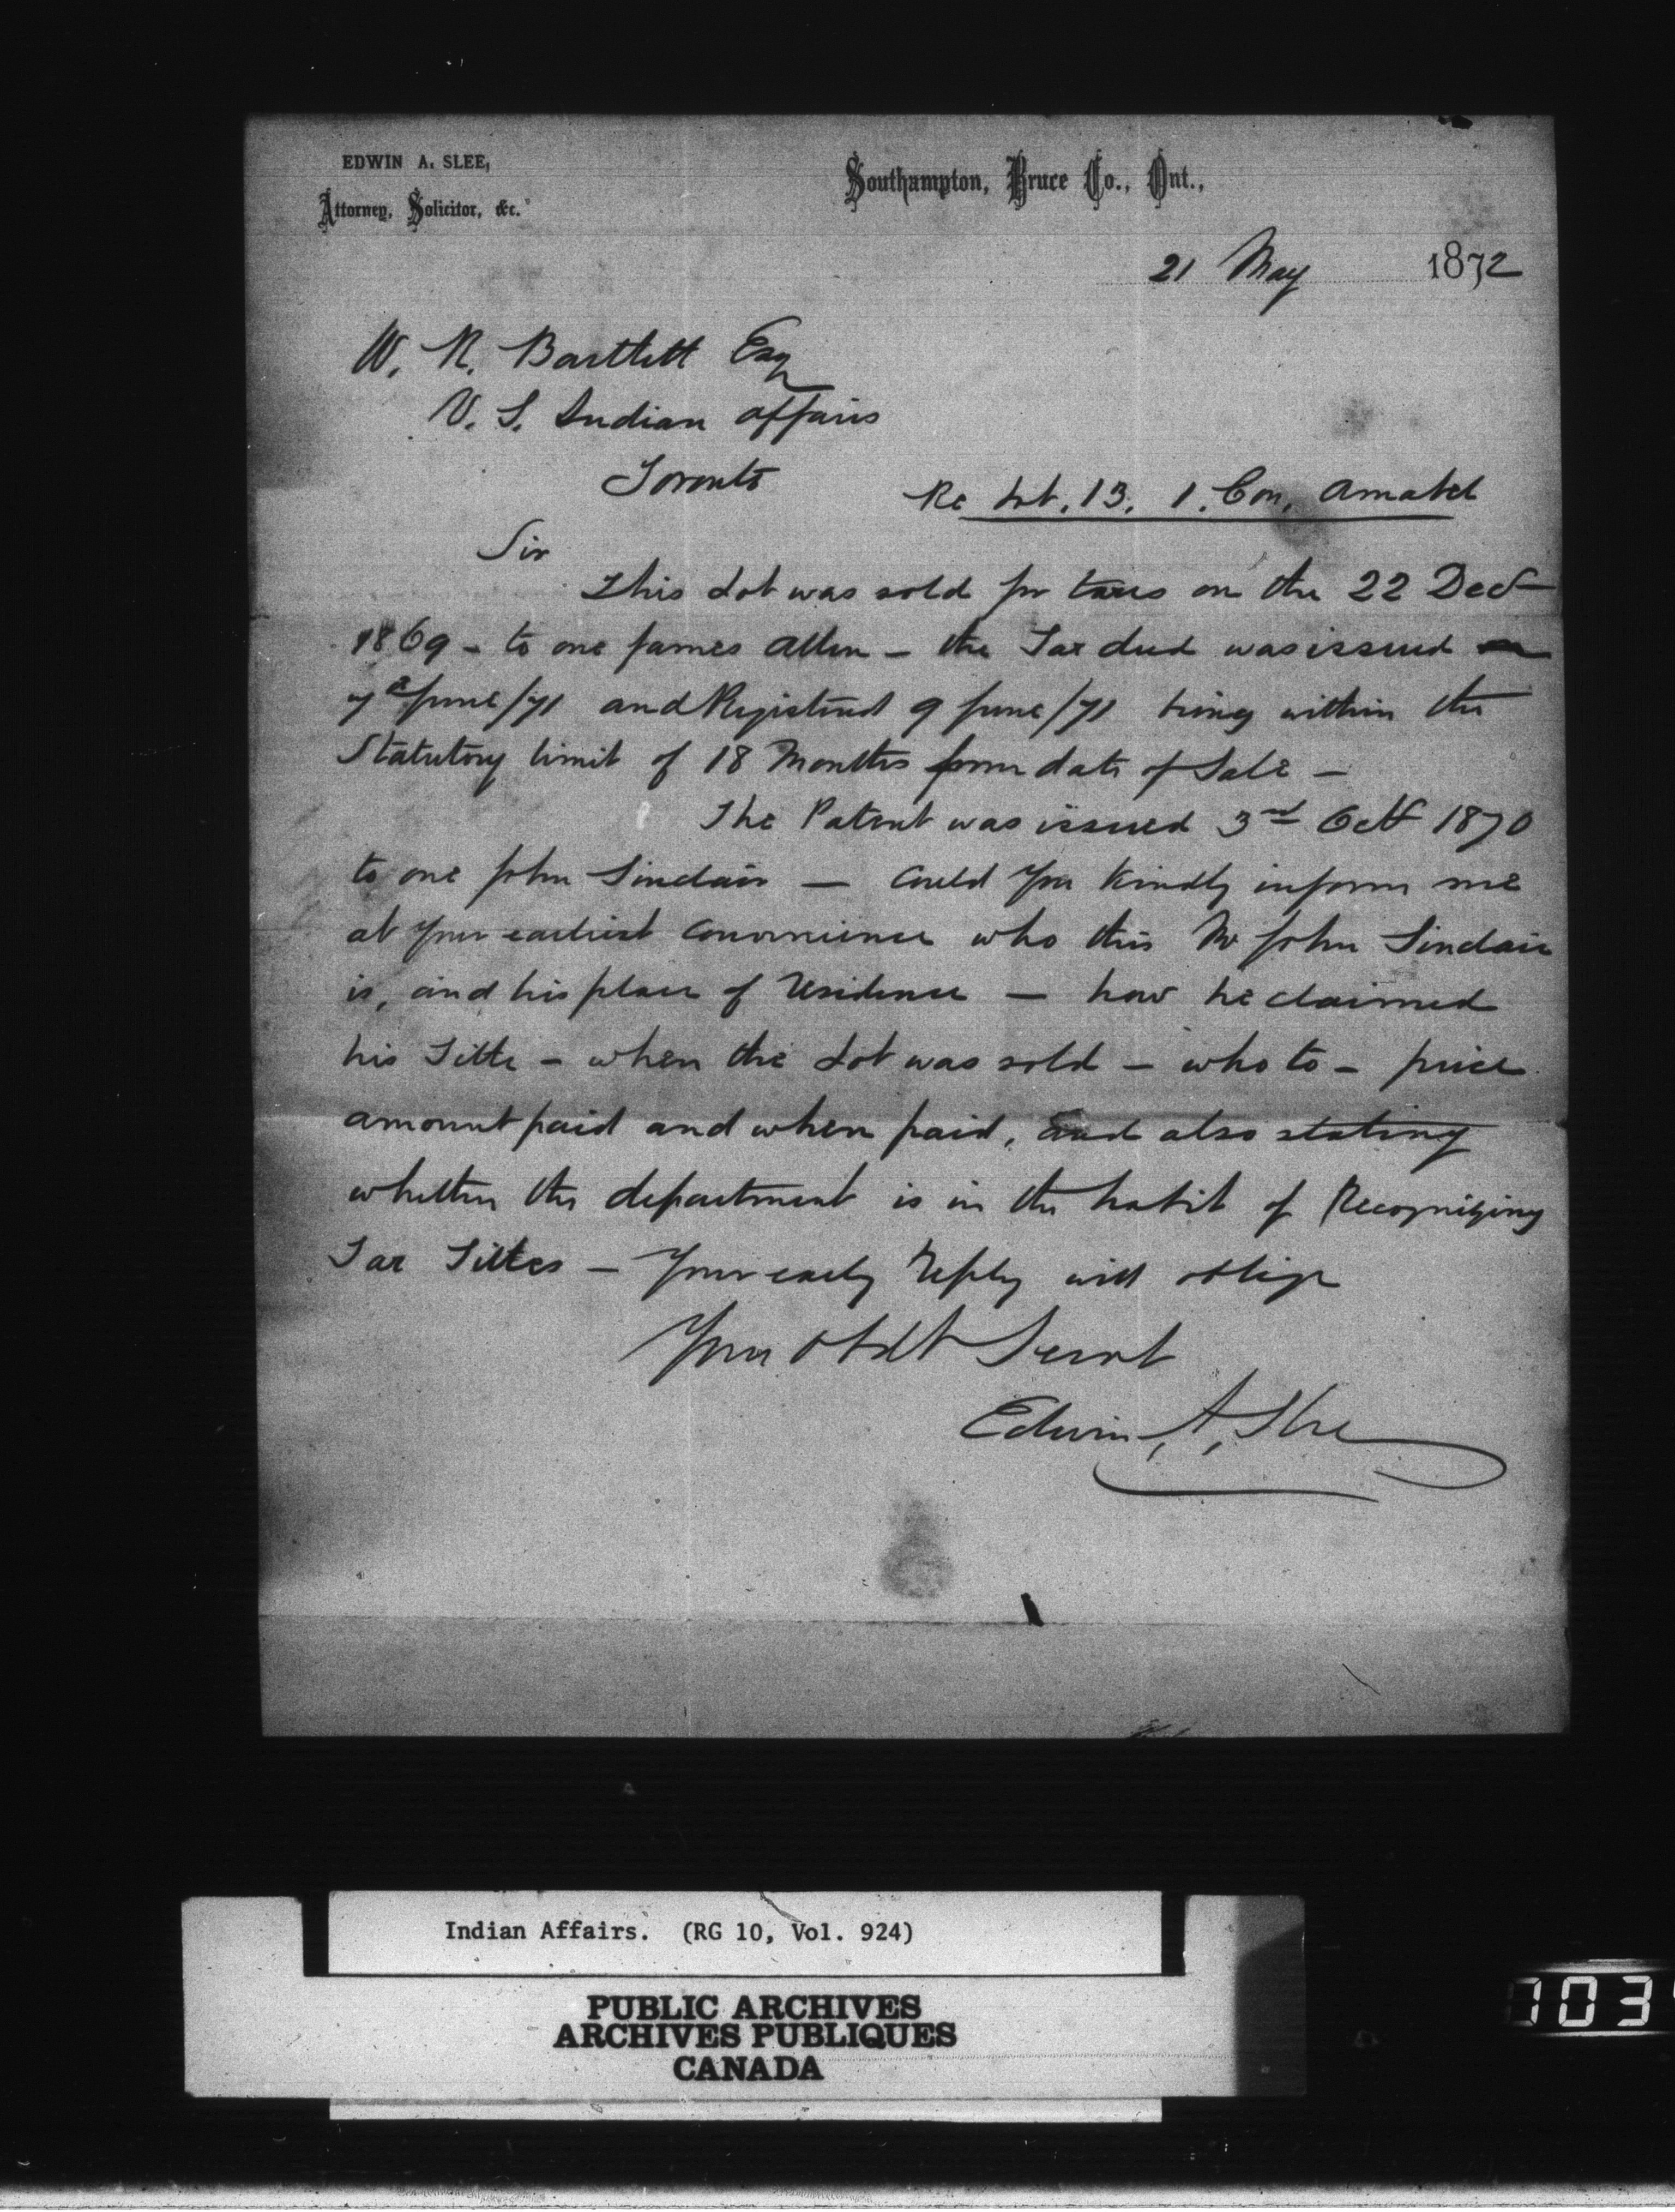 EDWIN A. SLEE,
Attorney, Solicitor, &c.
Southampton, Bruce Co., Ont.,
21 May 1872
W. R. Bartlett Esq
V. S. Indian affairs
Toronto
Re Lot. 13. 1. Con, Amabel
Sir
This Lot was sold for taxes on the 22 Dect
1869 - to one James Allen - the Tax deed was issued
7th June/71 and Registered 9 June/71 being within the
Statutory limit of 18 Months from date of Sale -
The Patent was issued 3rd Octr 1870
to one John Sinclair - Could you kindly inform me
at your earliest convenience who this Mr John Sinclair
is, and his place of Residence - how he claimed
his Title - when the Lot was sold - who to - price
amount paid and when paid, and also stating
whether the department is in the habit of Recognizing
Tax Titles - Your early Reply will oblige
Your Obdt Servt
Edwin A. Slee
Indian Affairs. (RG 10, Vol. 924)
PUBLIC ARCHIVES
ARCHIVES PUBLIQUES
CANADA
703